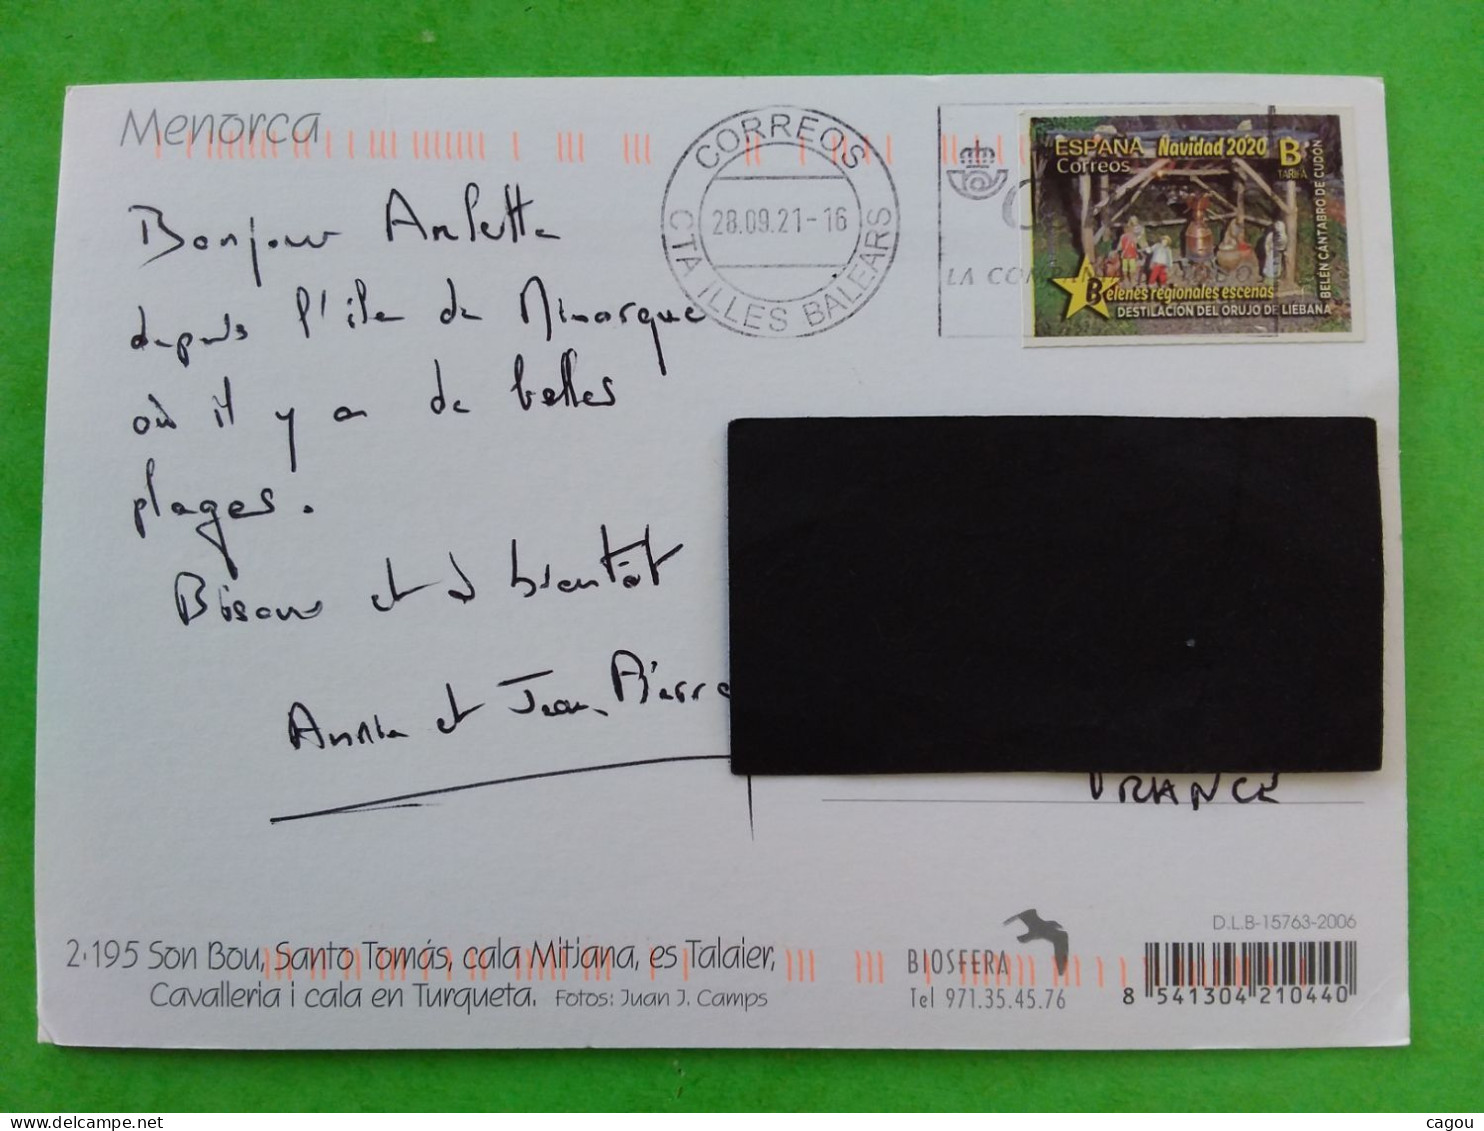 Menorca
CORREOS
28.09.21-16
CTA ILLES BALEARS
LA COM
ESPAÑA Navidad 2020 B
Correos TARIFA
BELÉN CÁNTABRO DE CUDÓN
Belenes regionales escenas
DESTILACIÓN DEL ORUJO DE LIÉBANA
Bonjour Arlette
depuis l'île de Minorque
où il y a de belles
plages.
Bisous et à bientôt
Annie et Jean Pierre
FRANCE
D.L.B-15763-2006
2.195 Son Bou, Santo Tomás, cala Mitjana, es Talaier,
Cavalleria i cala en Turqueta. Fotos: Juan J. Camps
BIOSFERA
Tel 971.35.45.76
8 541304 210440
cagou